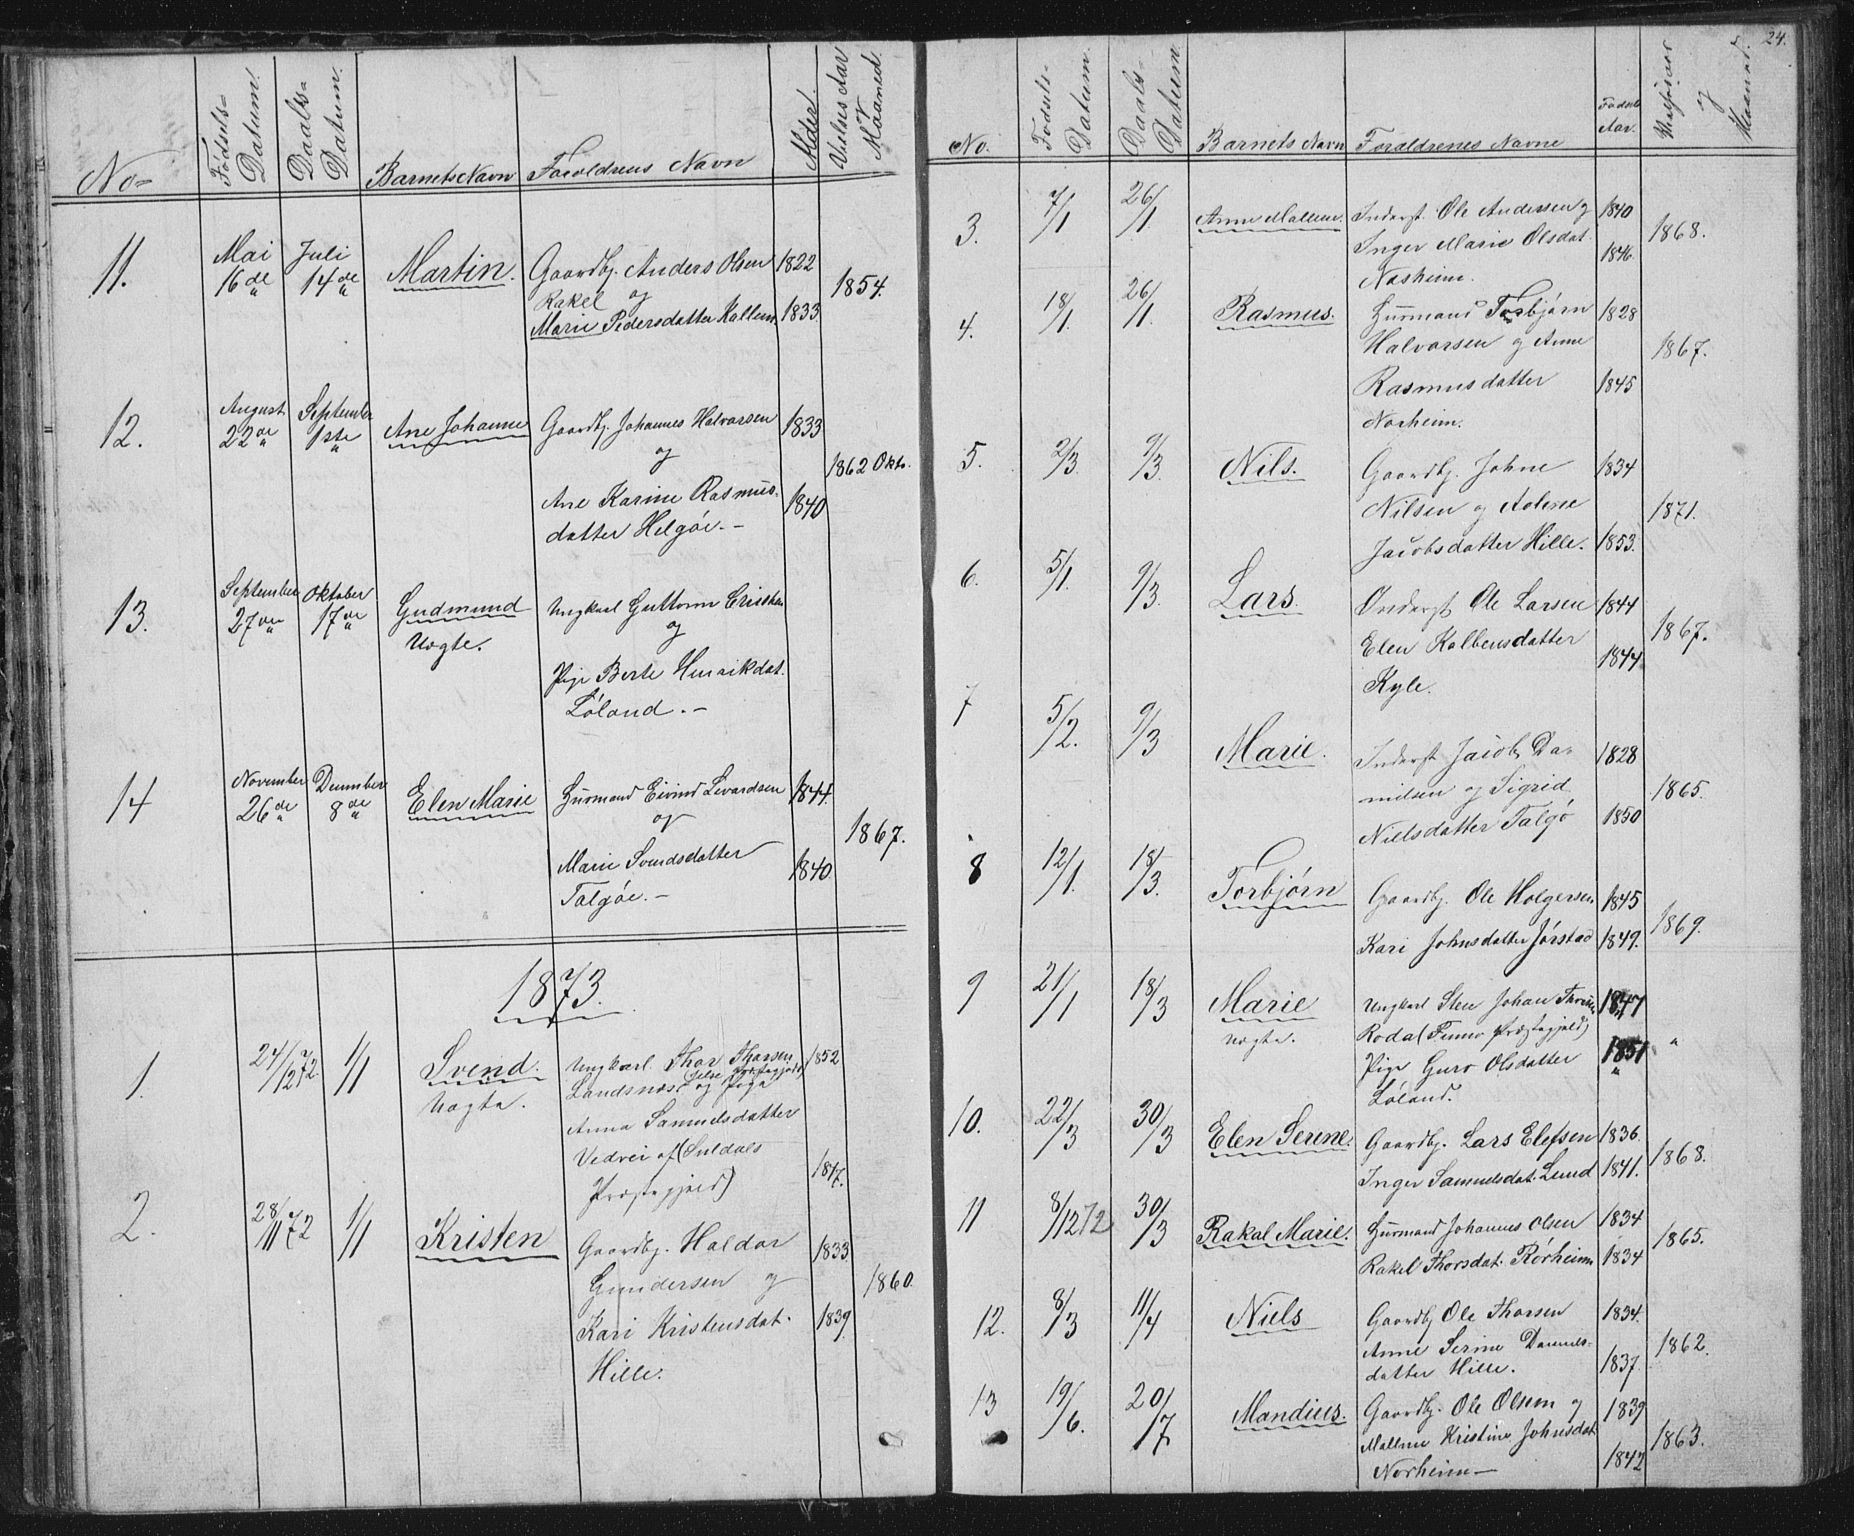 No
Fødsels-
Datum.
Daabs-
Datum.
Barnets Navn
Foreldrens Navn
Alder.
Vielses Aar
og
Maaned.
11.
Mai
16de
Juli
14de
Martin.
Gaardbg. Anders Olsen 1822
Rakel og
Marie Pedersdatter Hallem. 1833
1854.
12.
August
22de
September
1ste
Ane Johanne
Gaardbg. Johannes Halvorsen 1833
og
Ane Karine Rasmus- 1840
datter Helgøe. -
1862 Okto.
13.
September
27de
Oktober
17de
Gudmund
Uægte.
Ungkarl Guttorm
og
Pige Berte Henrikdat.
Løland. -
14
November
26de
December
8de
Elen Marie
Huusmand Eivind Sivardsen 1844.
og
Marie Svendsdatter 1840
Talgøe. -
1867.
1873.
1.
24/12 72.
1/1
Svend.
Uægte.
Ungkarl Thor Thorsen 1852
Landsnæs og Pige
Anna Samuelsdatter
Vedvei af (Suldals 1847.
Præstegjeld)
2.
28/11 72
1/1
Kristen
Gaardbg. Haldor 1833
Gundersen og
Kari Kristensdat. 1839
Hille.
1860
24.
No.
Fødsels-
Datum.
Daabs-
Datum.
Barnets Navn
Foraldrenes Navne
Fødsels
Aar.
og
Maaned.
3.
7/1
26/1
Anne Malene.
Inderst. Ole Andersen og 1840
Inger Marie Olsdat. 1846
Nasheim.
1868.
4.
18/1.
26/1.
Rasmus.
Huusmand Torbjørn 1828
Halvorsen og Anne
Rasmusdatter 1845
Norheim.
1867.
5.
2/3
9/3.
Nils.
Gaardbg. Johne 1834
Nilsen og
Jacobsdatter Hille. 1853.
1871.
6.
5/1.
9/3.
Lars.
Inderst Ole Larsen 1844
Elen Kolbensdatter 1844
Kyle.
1867.
7
5/2.
9/3
Marie.
Inderst Jacob Da- 1828
nilsen og Sigrid
Nielsdatter Talgø 1850
1865.
8
12/1.
18/3.
Torbjørn
Gaardbg. Ole Holgersen 1845
Kari Johnsdatter Jørstad 1849.
1869.
9
21/1
18/3
Marie
uægte.
Ungkarl Sten Johan 1847
Roda (Finnø Præstegjeld)
Pige Guro Olsdatter 1851
Løland.
"
10.
22/3
30/3
Elen Serine.
Gaardbg. Lars Elefsen 1836.
Inger Samuelsdat. Lund 1841.
1868.
11
8/12 72
30/3
Rakal Marie.
Huusmand Johannes Olsen 1834
Rakel Thorsdat. Rørheim 1834
1865.
12.
8/3
11/4
Niels
Gaardbg Ole Thorsen 1834.
Anne Serine Daniels-
datter Hille. 1837.
1862.
13
19/6.
20/7
Mandius.
Gaardbg. Ole Olsen og 1839
Mallene Kristine Johnsdat
Norheim - 1842
1863.